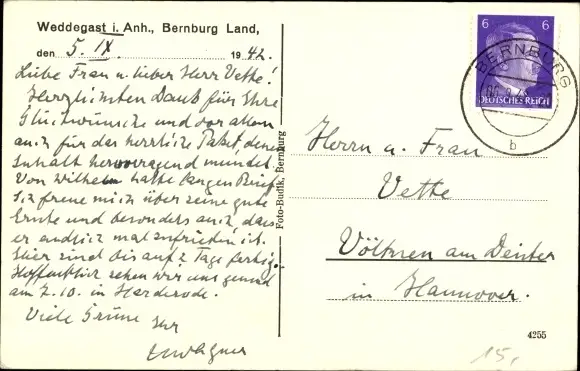 Weddegast i. Anh., Bernburg Land,
den 5. IX. 1942.
Liebe Frau u. lieber Herr Vethe!
Herzlichsten Dank für Ihre
Glückwünsche und vor allem
auch für das herrliche Paket, dessen
Inhalt hervorragend mundet.
Von Wilhelm hatte langen Brief.
Ich freue mich über seine gute
Ernte und besonders auch, dass
er endlich mal zufrieden ist.
Hier sind bis auf 2 Tage fertig.
Hoffentlich sehen wir uns gesund
am 7.10. in Harderode.
Viele Grüsse Ihr
Foto-Budik, Bernburg
6 6
DEUTSCHES REICH
BERNBURG
b
Herrn u. Frau
Vethe
Völksen am Deister
in Hannover.
4255
15,